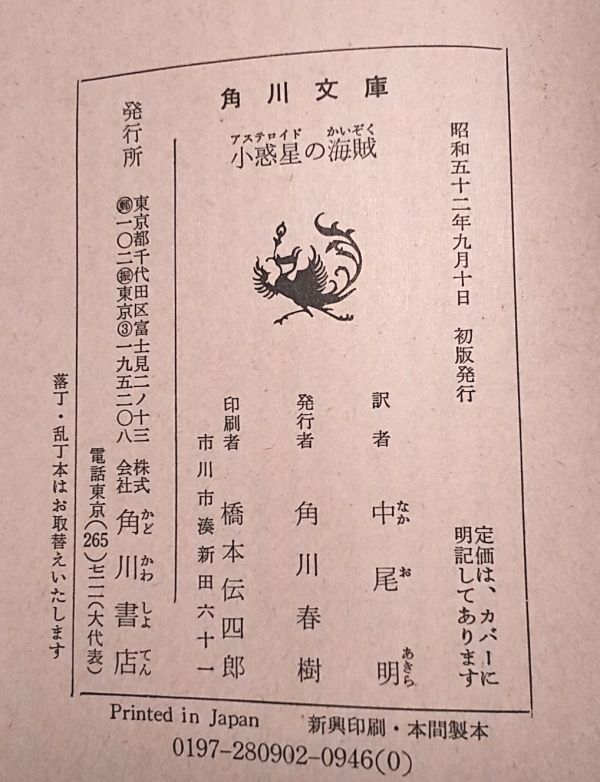 角川文庫
小惑星の海賊
アステロイド かいぞく
昭和五十二年九月十日 初版発行
定価は、カバーに
明記してあります
訳者 中尾明
なか お あきら
発行者 角川春樹
印刷者 橋本伝四郎
市川市湊新田六十一
発行所
東京都千代田区富士見二ノ十三
㊩一〇二㊞東京③一九五二〇八
株式
会社
角川書店
かど かわ しよ てん
電話東京(265)七一一一(大代表)
落丁・乱丁本はお取替えいたします
Printed in Japan 新興印刷・本間製本
0197-280902-0946(0)